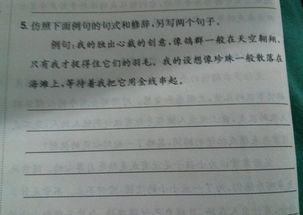 5.仿照下面例句的句式和修辞,另写两个句子。
例句:我的独出心裁的创意,像鸽群一般在天空翱翔,
只有我才捉得住它们的羽毛。我的设想像珍珠一般散落在
海滩上,等待着我把它用金线串起。